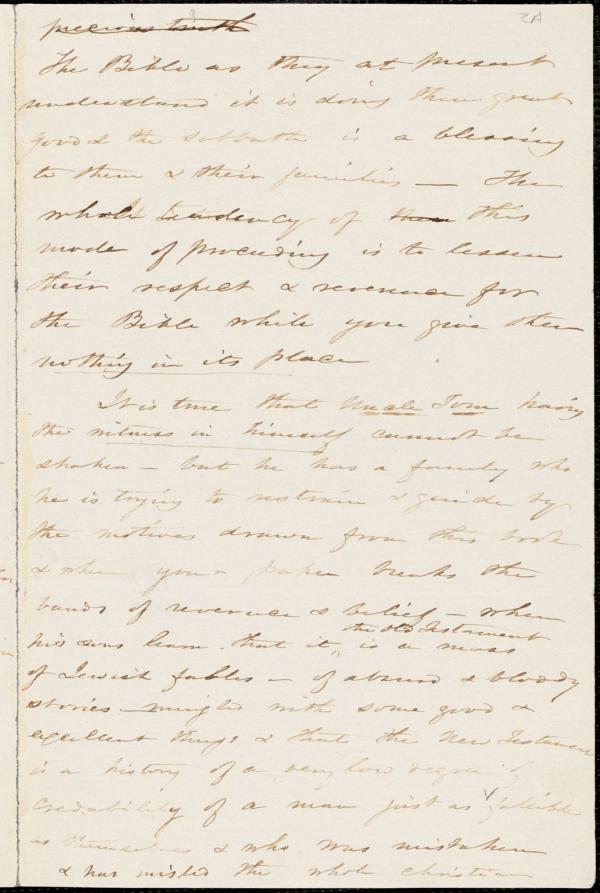 2A
precious truth
The Bible as they at present
understand it is doing them great
good & the sabbath is a blessing
to them & their families — The
whole tendency of them this
mode of proceeding is to lessen
their respect & reverence for
the Bible while you give them
nothing in its place
It is true that Uncle Tom having
the witness in himself cannot be
shaken — but he has a family who
he is trying to restrain & guide by
the motives drawn from this book
& when your paper breaks the
bands of reverence & belief — when
his sons learn that it the Old Testament is a mass
of Jewish fables — of absurd & bloody
stories mingled with some good &
excellent things & that the New Testament
is a history of a very low degree of
credability of a man just as fallible
as themselves & who was mistaken
& has misled the whole christian